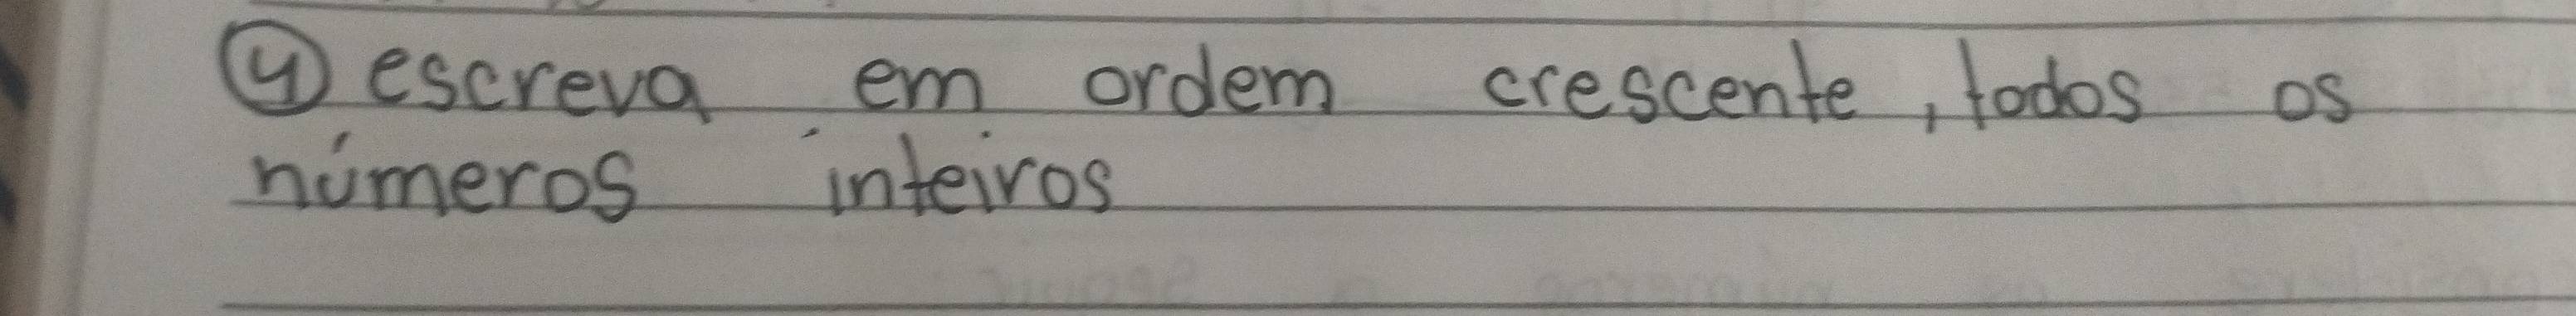 ④ escreva em ordem crescente, todos os
números inteiros